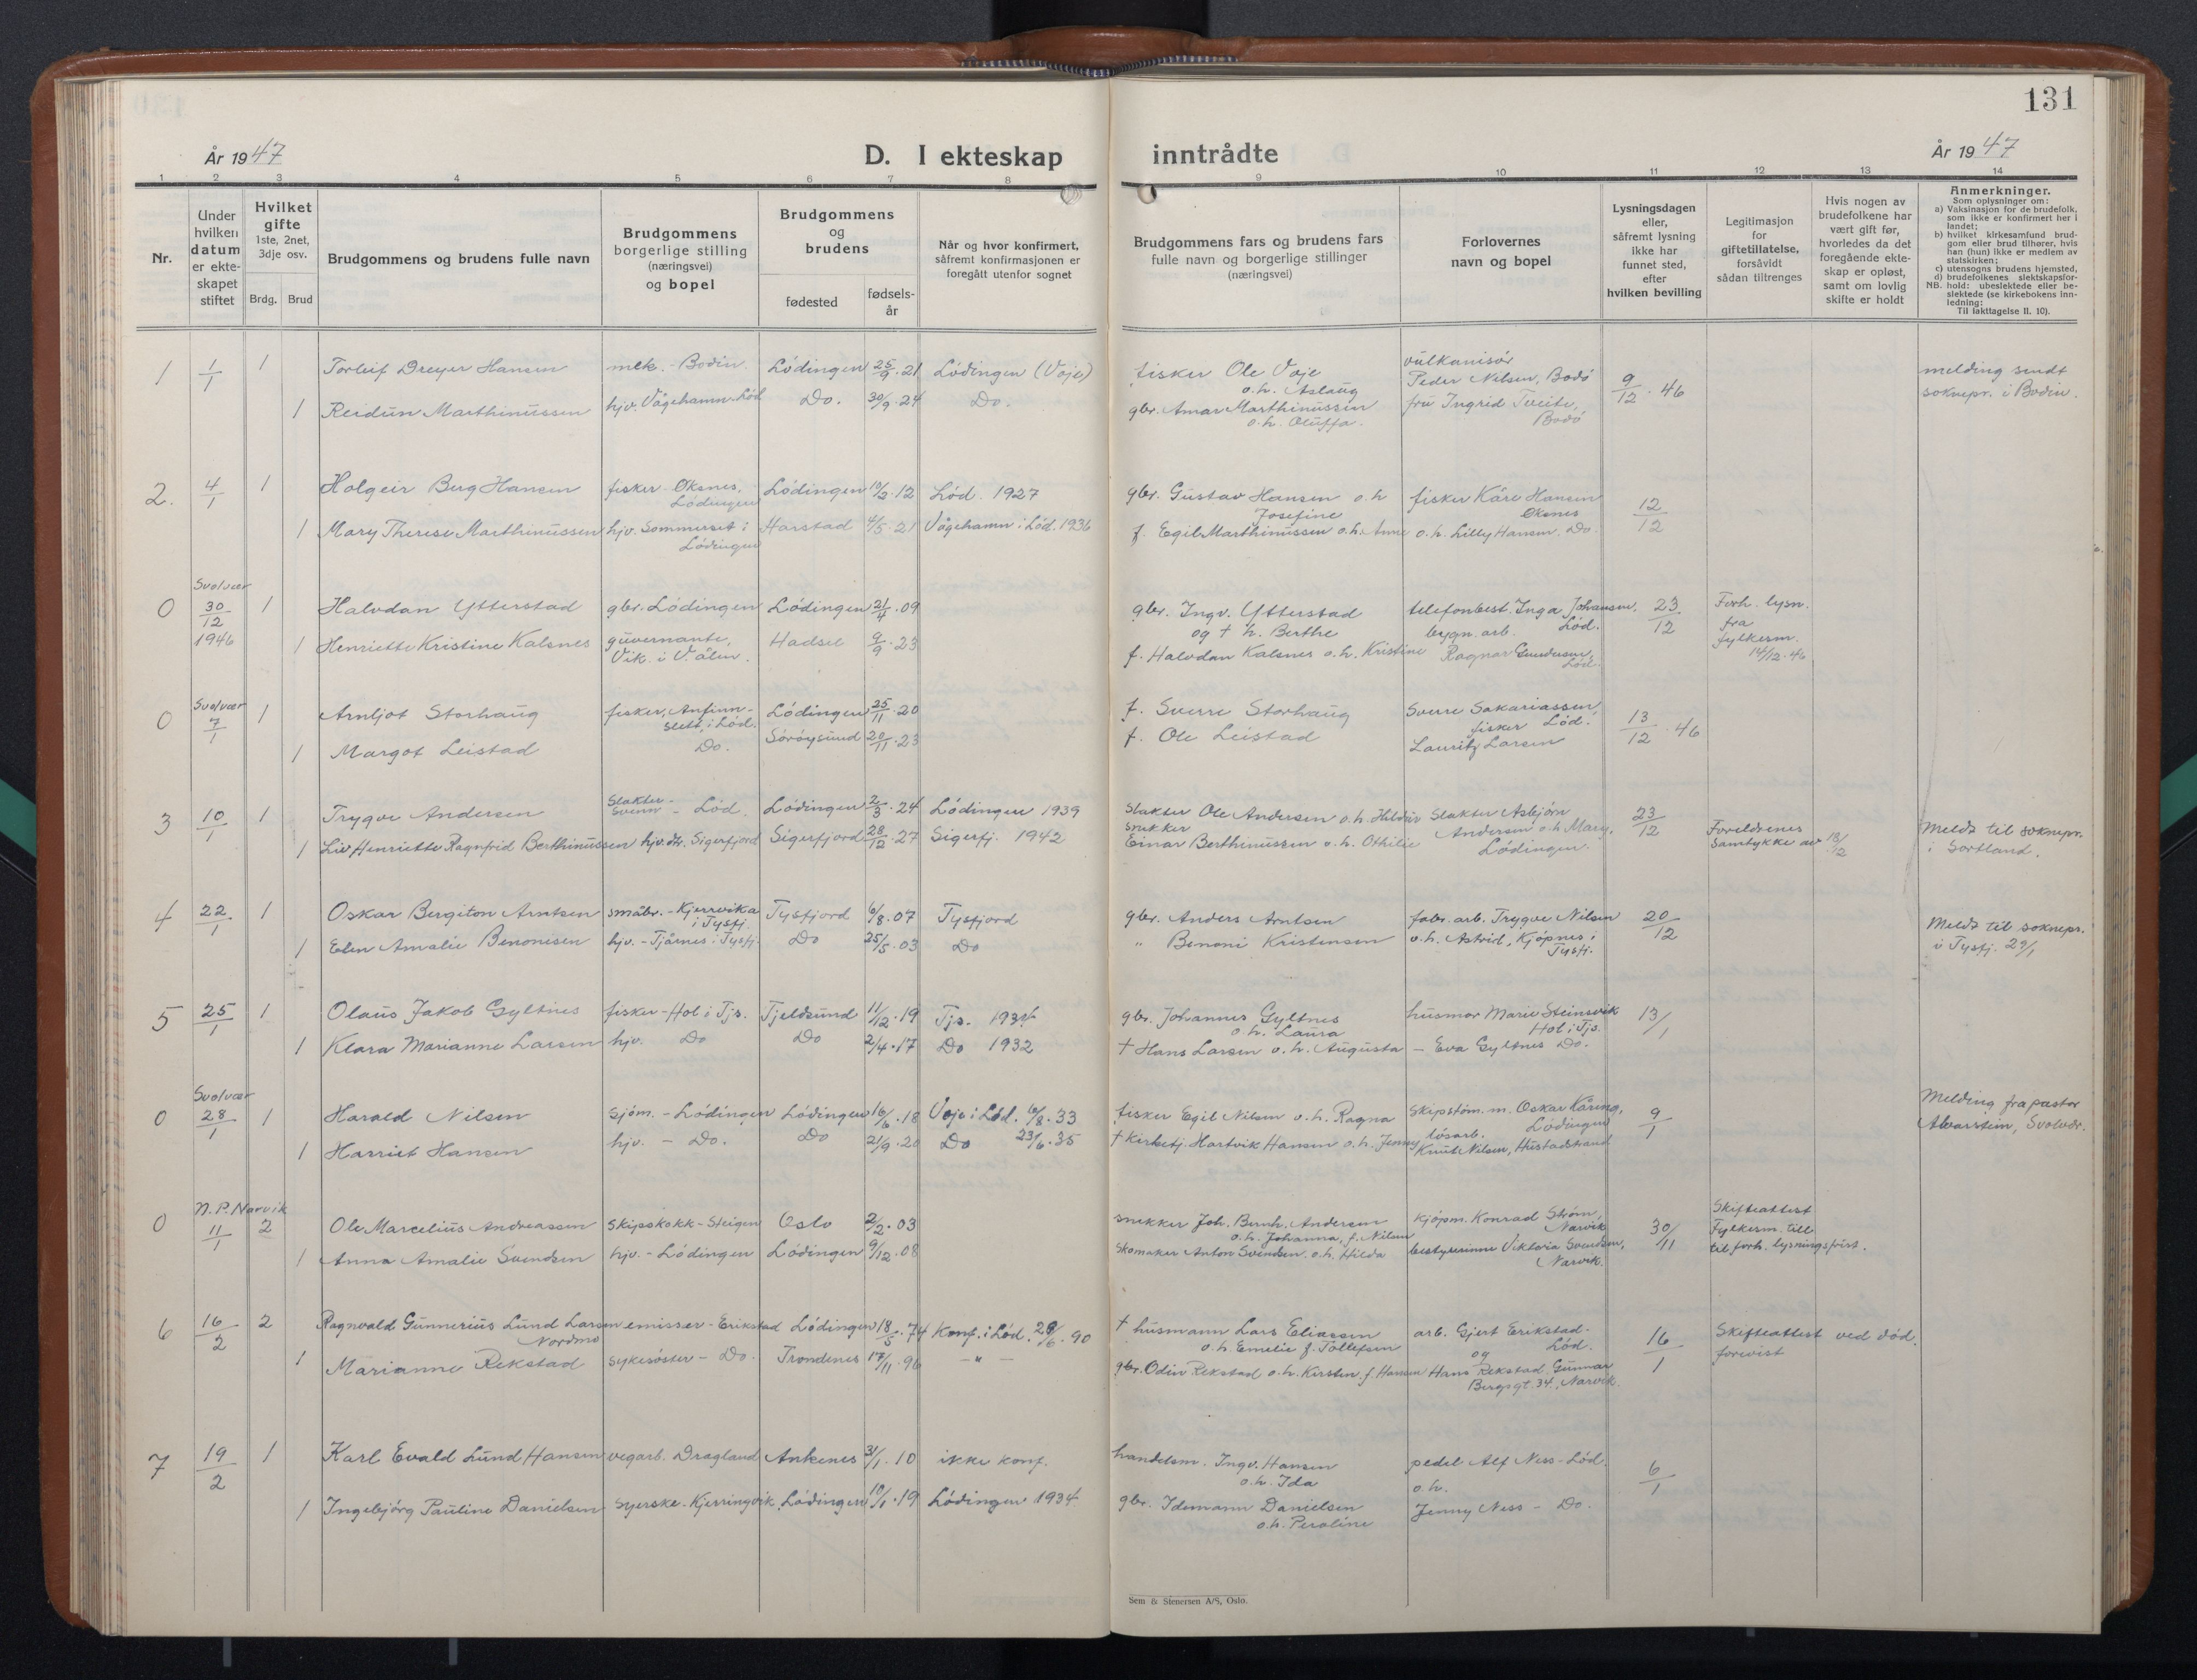 131
År 1947
D. I ekteskap inntrådte
År 1947
1 2 3 4 5 6 7 8 9 10 11 12 13 14
Nr.
Under hvilken datum er ekte-skapet stiftet
Hvilket gifte 1ste, 2net, 3dje osv.
Brdg. Brud
Brudgommens og brudens fulle navn
Brudgommens borgerlige stilling (næringsvei) og bopel
Brudgommens og brudens
fødested
fødsels-år
Når og hvor konfirmert, såfremt konfirmasjonen er foregått utenfor sognet
Brudgommens fars og brudens fars fulle navn og borgerlige stillinger (næringsvei)
Forlovernes navn og bopel
Lysningsdagen eller, såfremt lysning ikke har funnet sted, efter hvilken bevilling
Legitimasjon for giftetillatelse, forsåvidt sådan tiltrenges
Hvis nogen av brudefolkene har vært gift før, hvorledes da det foregående ekte-skap er opløst, samt om lovlig skifte er holdt
Anmerkninger.
Som oplysninger om:
a) Vaksinasjon for de brudefolk, som ikke er konfirmert her i landet;
b) hvilket kirkesamfund brud-gom eller brud tilhører, hvis han (hun) ikke er medlem av statskirken;
c) utensogns brudens hjemsted,
d) brudefolkenes slektskapsfor-hold: ubeslektede eller be-slektede (se kirkebokens inn-ledning:
NB.
Til iakttagelse II. 10).
1 1/1 1 Torleif Dreyer Hansen mek. - Bodin Lödingen 25/9.21 Lödingen (Voje) fisker Ole Voje o.h. Aslaug vulkanisör Peder Nilsen, Bodö 9/12.46 melding sendt soknepr. i Bodin.
1 Reidun Marthinussen hjv. Vågehamn. Löd Do. 30/9.24 Do. gbr. Amar Marthinussen o.h. Oluffa. fru Ingrid Tveite, Bodö
2. 4/1 1 Holgeir Berg Hansen fisker Oksnes, Lödingen Lödingen 10/2.12 Löd. 1927 gbr. Gustav Hansen o.h Josefine fisker Kåre Hansen Oksnes 12/12
1 Mary Therese Marthinussen hjv. Sommerset i Lödingen Harstad 4/5.21 Vågehamn i Löd. 1936 f. Egil Marthinussen o.h. Anne o.h. Lilly Hansen, Do.
0 Svolvær 30/12 1946 1 Halvdan Ytterstad gbr. Lödingen Lödingen 21/4.09 gbr. Ingv. Ytterstad og † h. Berthe telefonbest. Inga Johansen, Löd. 23/12 Forh. lysn. fra fylkesm. 14/12.46
1 Henriette Kristine Kalsnes guvernante, Vik. i V.ålen. Hadsel 9/9.23 f. Halvdan Kalsnes o.h. Kristine bygn. arb. Ragnar Gundersen, Löd.
0 Svolvær 7/1 1 Arnljot Storhaug fisker, Anfinn-slett, i Löd. Lödingen 25/11.20 f. Sverre Storhaug Sverre Sakariassen, fisker Löd. 13/12.46
1 Margot Leistad Do. Söröysund 20/11.23 f. Ole Leistad Lauritz Larsen
3 10/1 1 Trygve Andersen Slakter-Svenn - Löd. Lödingen 2/3.24 Lödingen 1939 Slakter Ole Andersen o.h. Hildur Slakter Asbjörn Andersen o.h Mary, Lödingen. 23/12 Foreldrenes Samtykke av 13/12 Meldt til soknepr. i Sortland.
1 Liv Henriette Ragnfrid Berthinussen hjv. dtr. Sigerfjord Sigerfjord 28/12.27 Sigerfj. 1942 snekker Einar Berthinussen o.h. Othilie
4 22/1 1 Oskar Bergiton Arntsen småbr. - Kjerrvika i Tysfj Tysfjord 6/8.07 Tysfjord gbr. Anders Arntsen fabr. arb. Trygve Nilsen 20/12 Meldt til soknepr. i Tysfj. 29/1
1 Elen Amalie Benonisen hjv. - Tjårnes i Tysfj. Do 25/5.03 Do " Benoni Kristensen o.h. Astrid, Kjöpnes i Tysfj.
5 25/1 1 Olaus Jakob Gyltnes fisker - Hol i Tjs. Tjeldsund 11/12.19 Tjs. 1934 gbr. Johannes Gyltnes o.h. Laura husmor Marie Steinsvik Hol i Tjs. 13/1
1 Klara Marianne Larsen hjv. Do Do 2/4.17 Do 1932 † Hans Larsen o.h. Augusta - Eva Gyltnes Do.
0 Svolvær 28/1 1 Harald Nilsen sjöm. - Lödingen Lödingen 16/6.18 Voje i Löd. 6/8.33 fisker Egil Nilsen o.h. Ragna Skipstöm. m. Oskar Käring, Lödingen 9/1 Melding fra pastor Alvarstein, Svolvær.
1 Harriet Hansen hjv. - Do. Do 21/9.20 Do 23/6.35 † Kirketj. Hartvik Hansen o.h. Jenny lösarb. Knut Nilsen, Hustadstrand
0 N.P. Narvik 11/1 2 Ole Marcelius Andreassen Skipskokk - Steigen Oslo 2/2.03 snekker Joh. Bernh. Andersen o.h. Johanna, f. Nilsen Kjöpm. Konrad Ström, Narvik 30/11 Skifteattest Fylkesm. till. til forh. lysningsfrist.
1 Anna Amalie Svendsen hjv. - Lödingen Lödingen 9/12.08 Skomaker Anton Svendsen. o.h. Hilda bestyrerinne Viktoria Svendsen, Narvik.
6 16/2 2 Ragnvald Gunnerius Lund Larsen Nordmo emissær - Erikstad Lödingen 18/5.74 Konf. i Löd. 29/6.90 † husmann Lars Eliassen o.h. Emelie f. Tollefsen arb. Gjert Erikstad - Löd. og 16/1 Skifteattest ved död. forevist
1 Marianne Rekstad sykesöster - Do. Trondenes 17/11.96 - " - gbr. Odin Rekstad o.h. Kirsten f. Hansen Hans Rekstad, Gunnar Bergsgt. 34., Narvik.
7 19/2 1 Karl Evald Lund Hansen vegarb. Dragland Ankenes 31/1.10 ikke konf. handelsm. Ingv. Hansen o.h. Ida pedel Alf Ness - Löd. 6/1
1 Ingebjörg Pauline Danielsen syerske - Kjerringvik Lödingen 10/1.19 Lödingen 1934. gbr. Idemann Danielsen o.h. Peroline o.h. Jenny Ness - Do.
Sem & Stenersen A/S, Oslo.